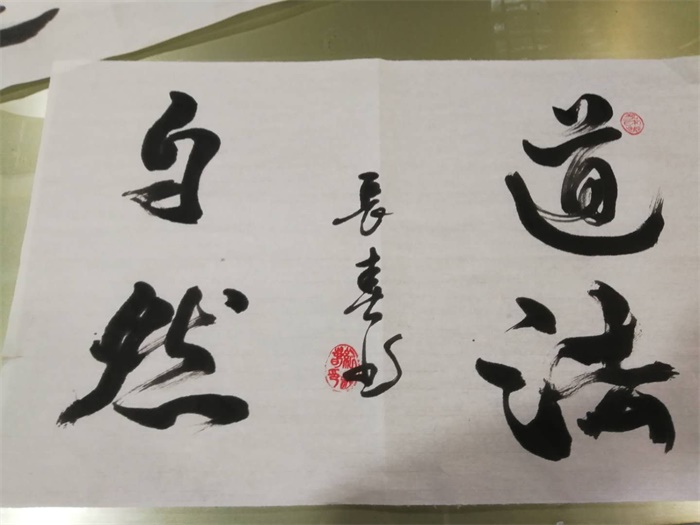 道法
長春书
自然